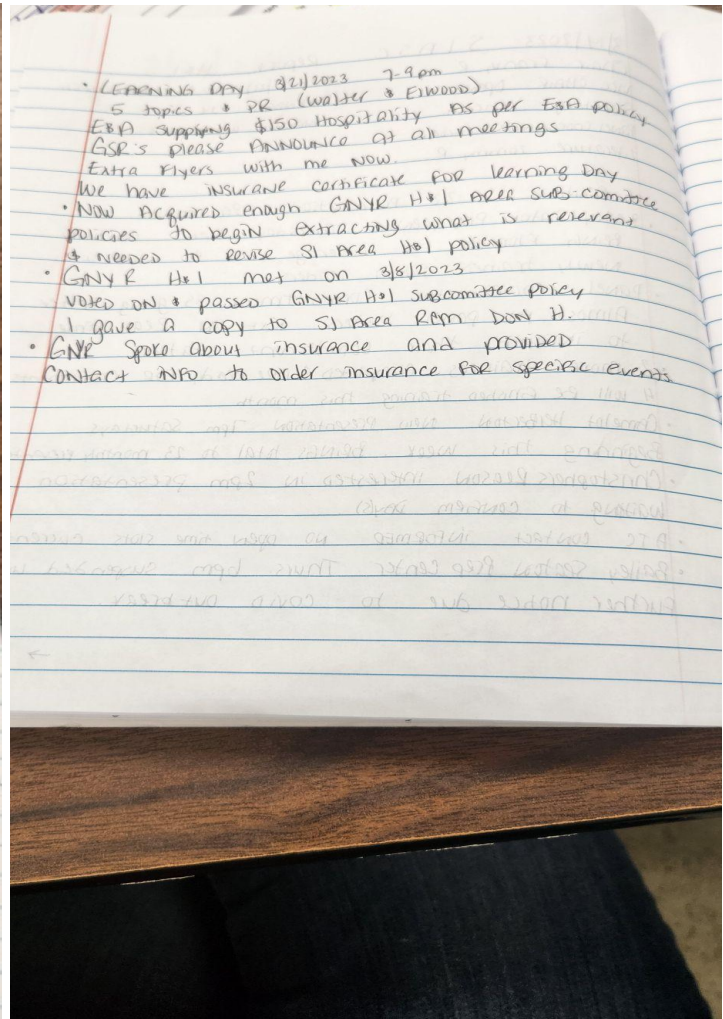 · LEARNING DAY 3/21/2023 7-9pm
5 topics & PR (Walter & Elwood)
E&A supplying $150 Hospitality AS per E&A policy
GSR's please ANNOUNCE at all meetings
Extra Flyers with me NOW.
We have insurane certificate FOR learning DAY
· NOW Acquired enough GNYR H&I AREA SUB-comittee
policies to begin extracting what is relevant
& needed to revise SI Area H&I policy
· GNYR H&I met on 3/8/2023
voted ON & passed GNYR H&I subcomittee policy
I gave a copy to SI Area Rcm DON H.
· GNYR spoke about insurance and provided
Contact iNFO to order insurance FOR specific events